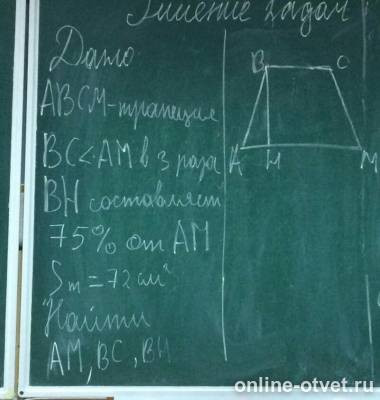 Решение задач
Дано
ABCM-трапеция
BC<AM в 3 раза
BH составляет
75% от AM
Sт=72см²
Найти
AM, BC, BH
B C
A H M
online-otvet.ru